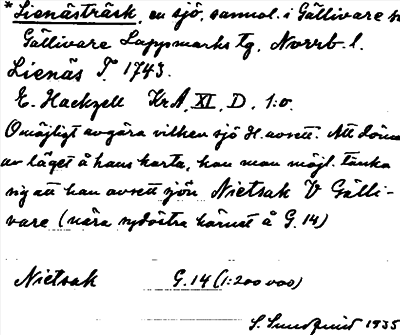 * Lienästräsk, en sjö, sannol. i Gällivare
Gällivare Lappmarks Tg, Norrb. l.
Lienäs T. 1743.
E. Hackzell KrA, XI, D, 1:o.
Omöjligt avgöra vilken sjö H. avsett. Att döma
av läget å hans karta, kan man möjl. tänka
sig att han avsett sjön Nietsak V Gälli-
vare (nära sydöstra hörnet å G. 14)
Nietsak G. 14 (1:200 000)
S. Sundquist 1935